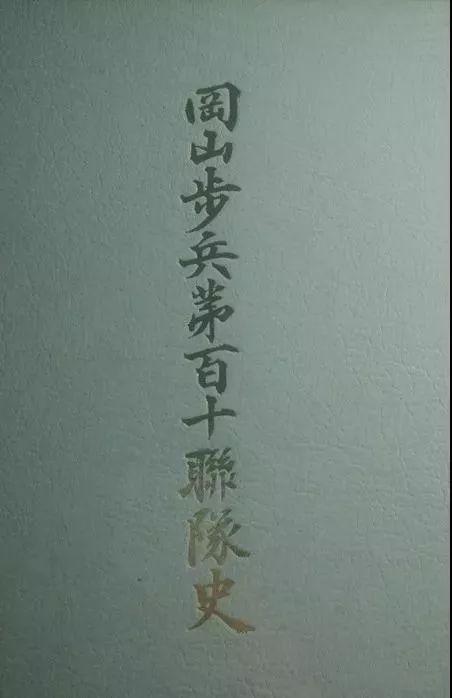 岡山歩兵第百十聯隊史